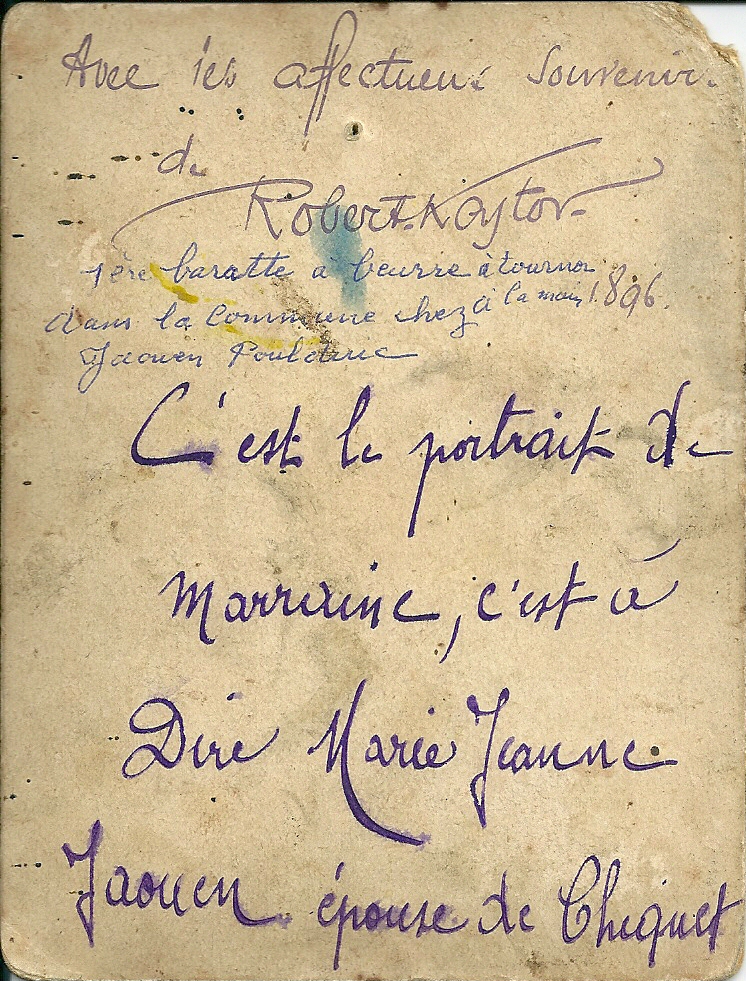 Avec les affectueux Souvenir.
de
Robert Kastor
1ère baratte à beurre à tourner
à la main 1896.
dans la Commune chez
Jaouen Pouldu
C'est le portrait de
Marraine, c'est à
Dire Marie Jeanne
Jaouen épouse de Chiquet